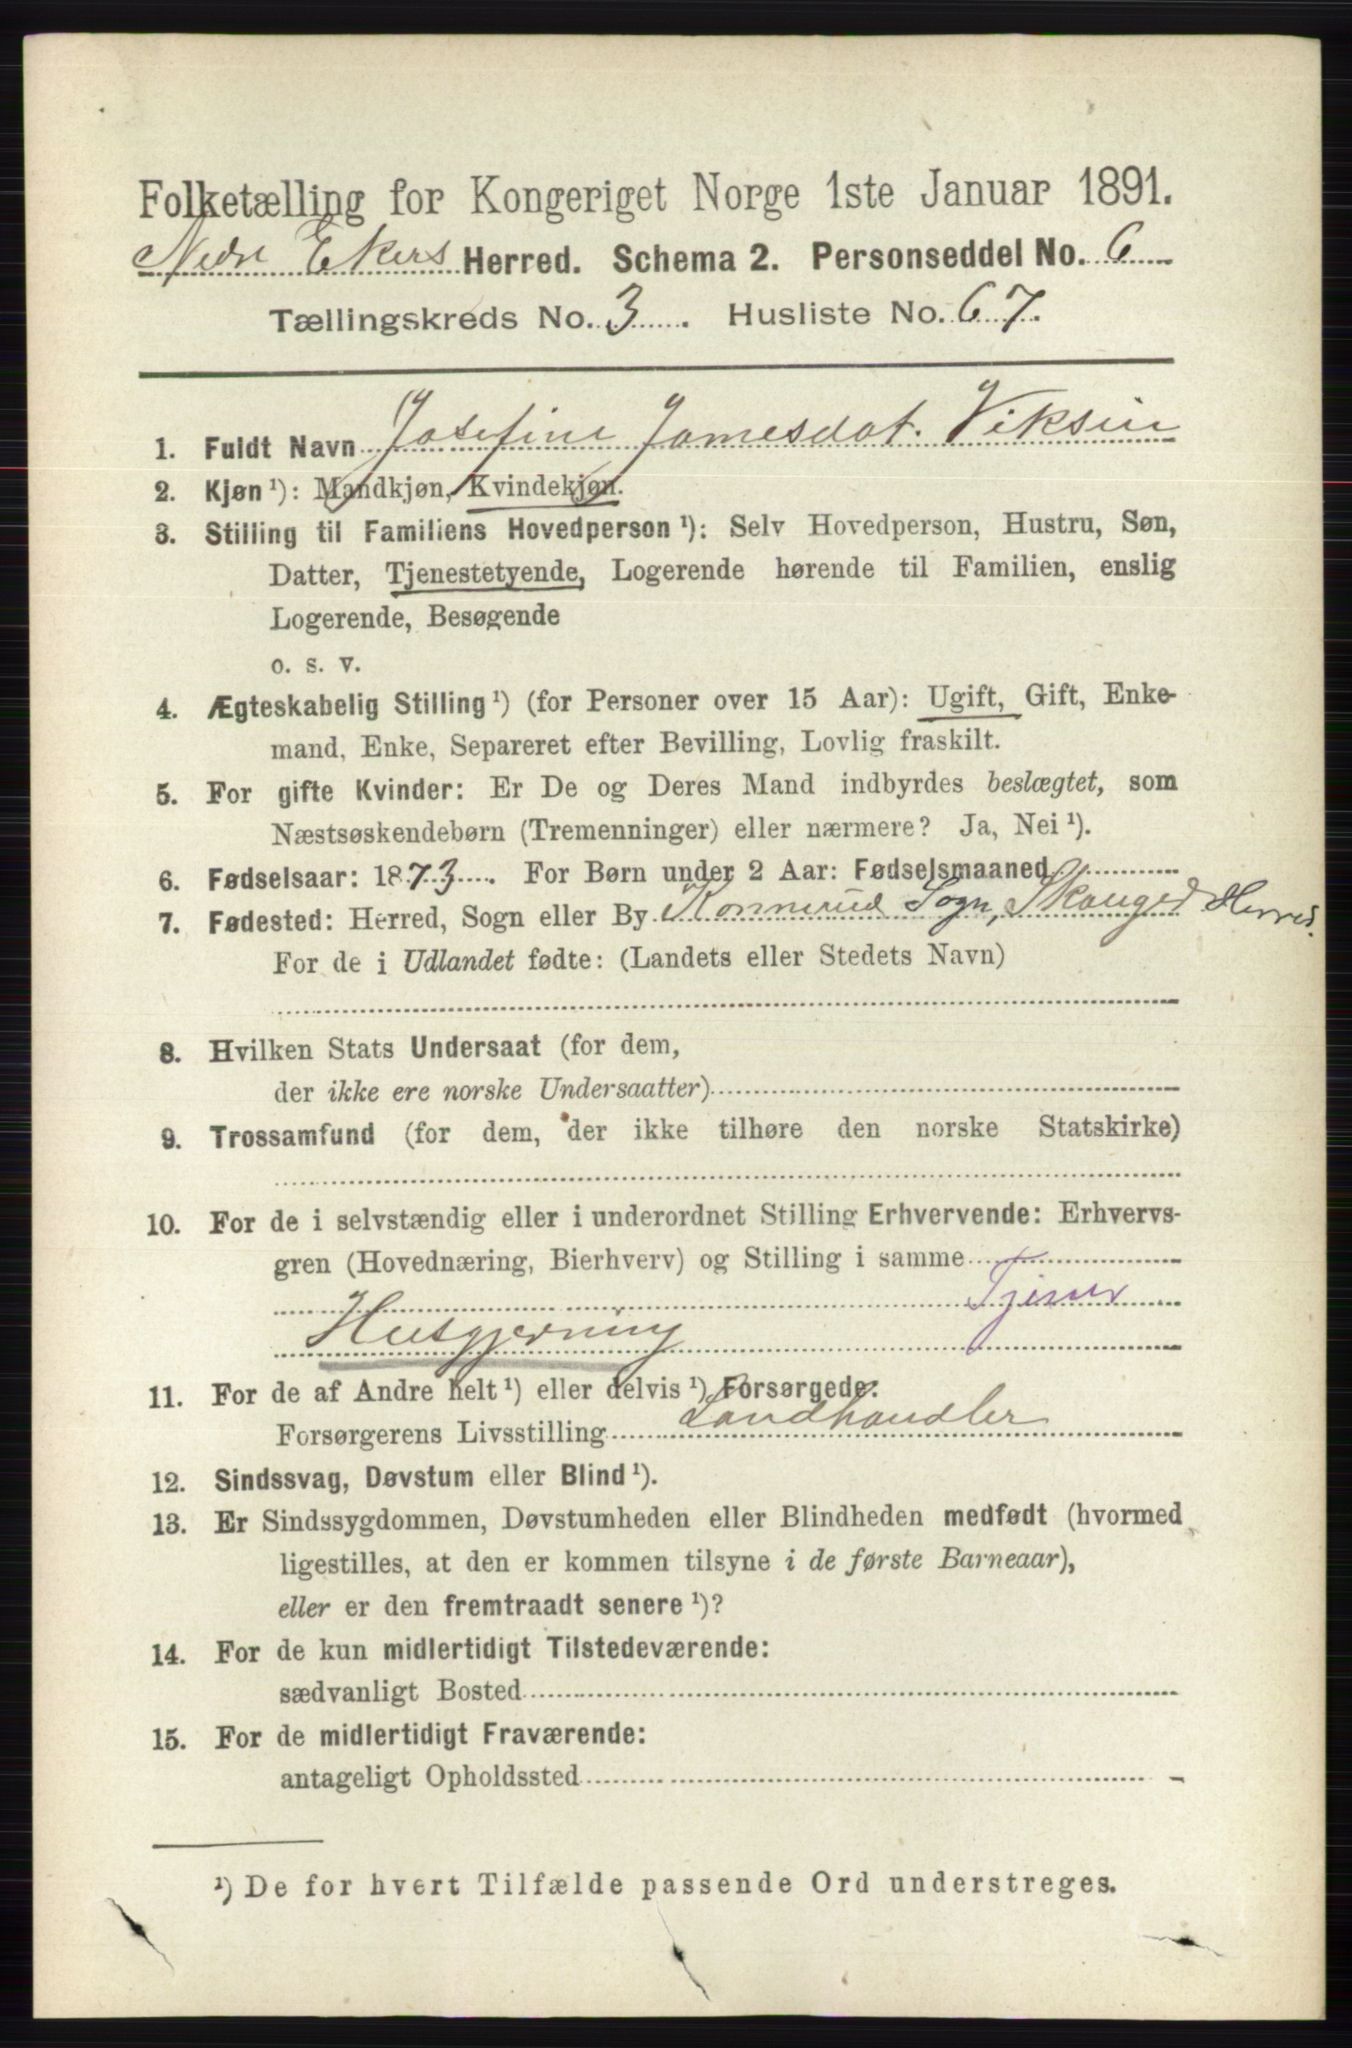 Folketælling for Kongeriget Norge 1ste Januar 1891.
Nedre Ekers Herred. Schema 2. Personseddel No. 6
Tællingskreds No. 3. Husliste No. 67.
1. Fuldt Navn Josefine Jamesdat. Viksin
2. Kjøn ¹): Mandkjøn, Kvindekjøn.
3. Stilling til Familiens Hovedperson ¹): Selv Hovedperson, Hustru, Søn,
Datter, Tjenestetyende, Logerende hørende til Familien, enslig
Logerende, Besøgende
o. s. v.
4. Ægteskabelig Stilling ¹) (for Personer over 15 Aar): Ugift, Gift, Enke-
mand, Enke, Separeret efter Bevilling, Lovlig fraskilt.
5. For gifte Kvinder: Er De og Deres Mand indbyrdes beslægtet, som
Næstsøskendebørn (Tremenninger) eller nærmere? Ja, Nei ¹).
6. Fødselsaar: 1873. For Børn under 2 Aar: Fødselsmaaned
7. Fødested: Herred, Sogn eller By Konnerud Sogn, Skouger Herred.
For de i Udlandet fødte: (Landets eller Stedets Navn)
8. Hvilken Stats Undersaat (for dem,
der ikke ere norske Undersaatter)
9. Trossamfund (for dem, der ikke tilhøre den norske Statskirke)
10. For de i selvstændig eller i underordnet Stilling Erhvervende: Erhvervs-
gren (Hovednæring, Bierhverv) og Stilling i samme
Husgjerning
11. For de af Andre helt ¹) eller delvis ¹) Forsørgede:
Forsørgerens Livsstilling Landhandler
12. Sindssvag, Døvstum eller Blind ¹).
13. Er Sindssygdommen, Døvstumheden eller Blindheden medfødt (hvormed
ligestilles, at den er kommen tilsyne i de første Barneaar),
eller er den fremtraadt senere ¹)?
14. For de kun midlertidigt Tilstedeværende:
sædvanligt Bosted
15. For de midlertidigt Fraværende:
antageligt Opholdssted
¹) De for hvert Tilfælde passende Ord understreges.